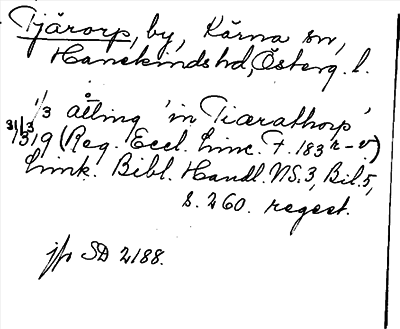 Tjärorp, by, Kärna sn,
Hanekinds hd, Österg. l.
1/3 åtting 'in Tiærathorp'
31/3 1319 (Reg. Eccl. Linc. F. 183 r-v)
Link. Bibl. Handl. NS. 3, Bil. 5,
s. 260. regest.
jfr SD 2188.